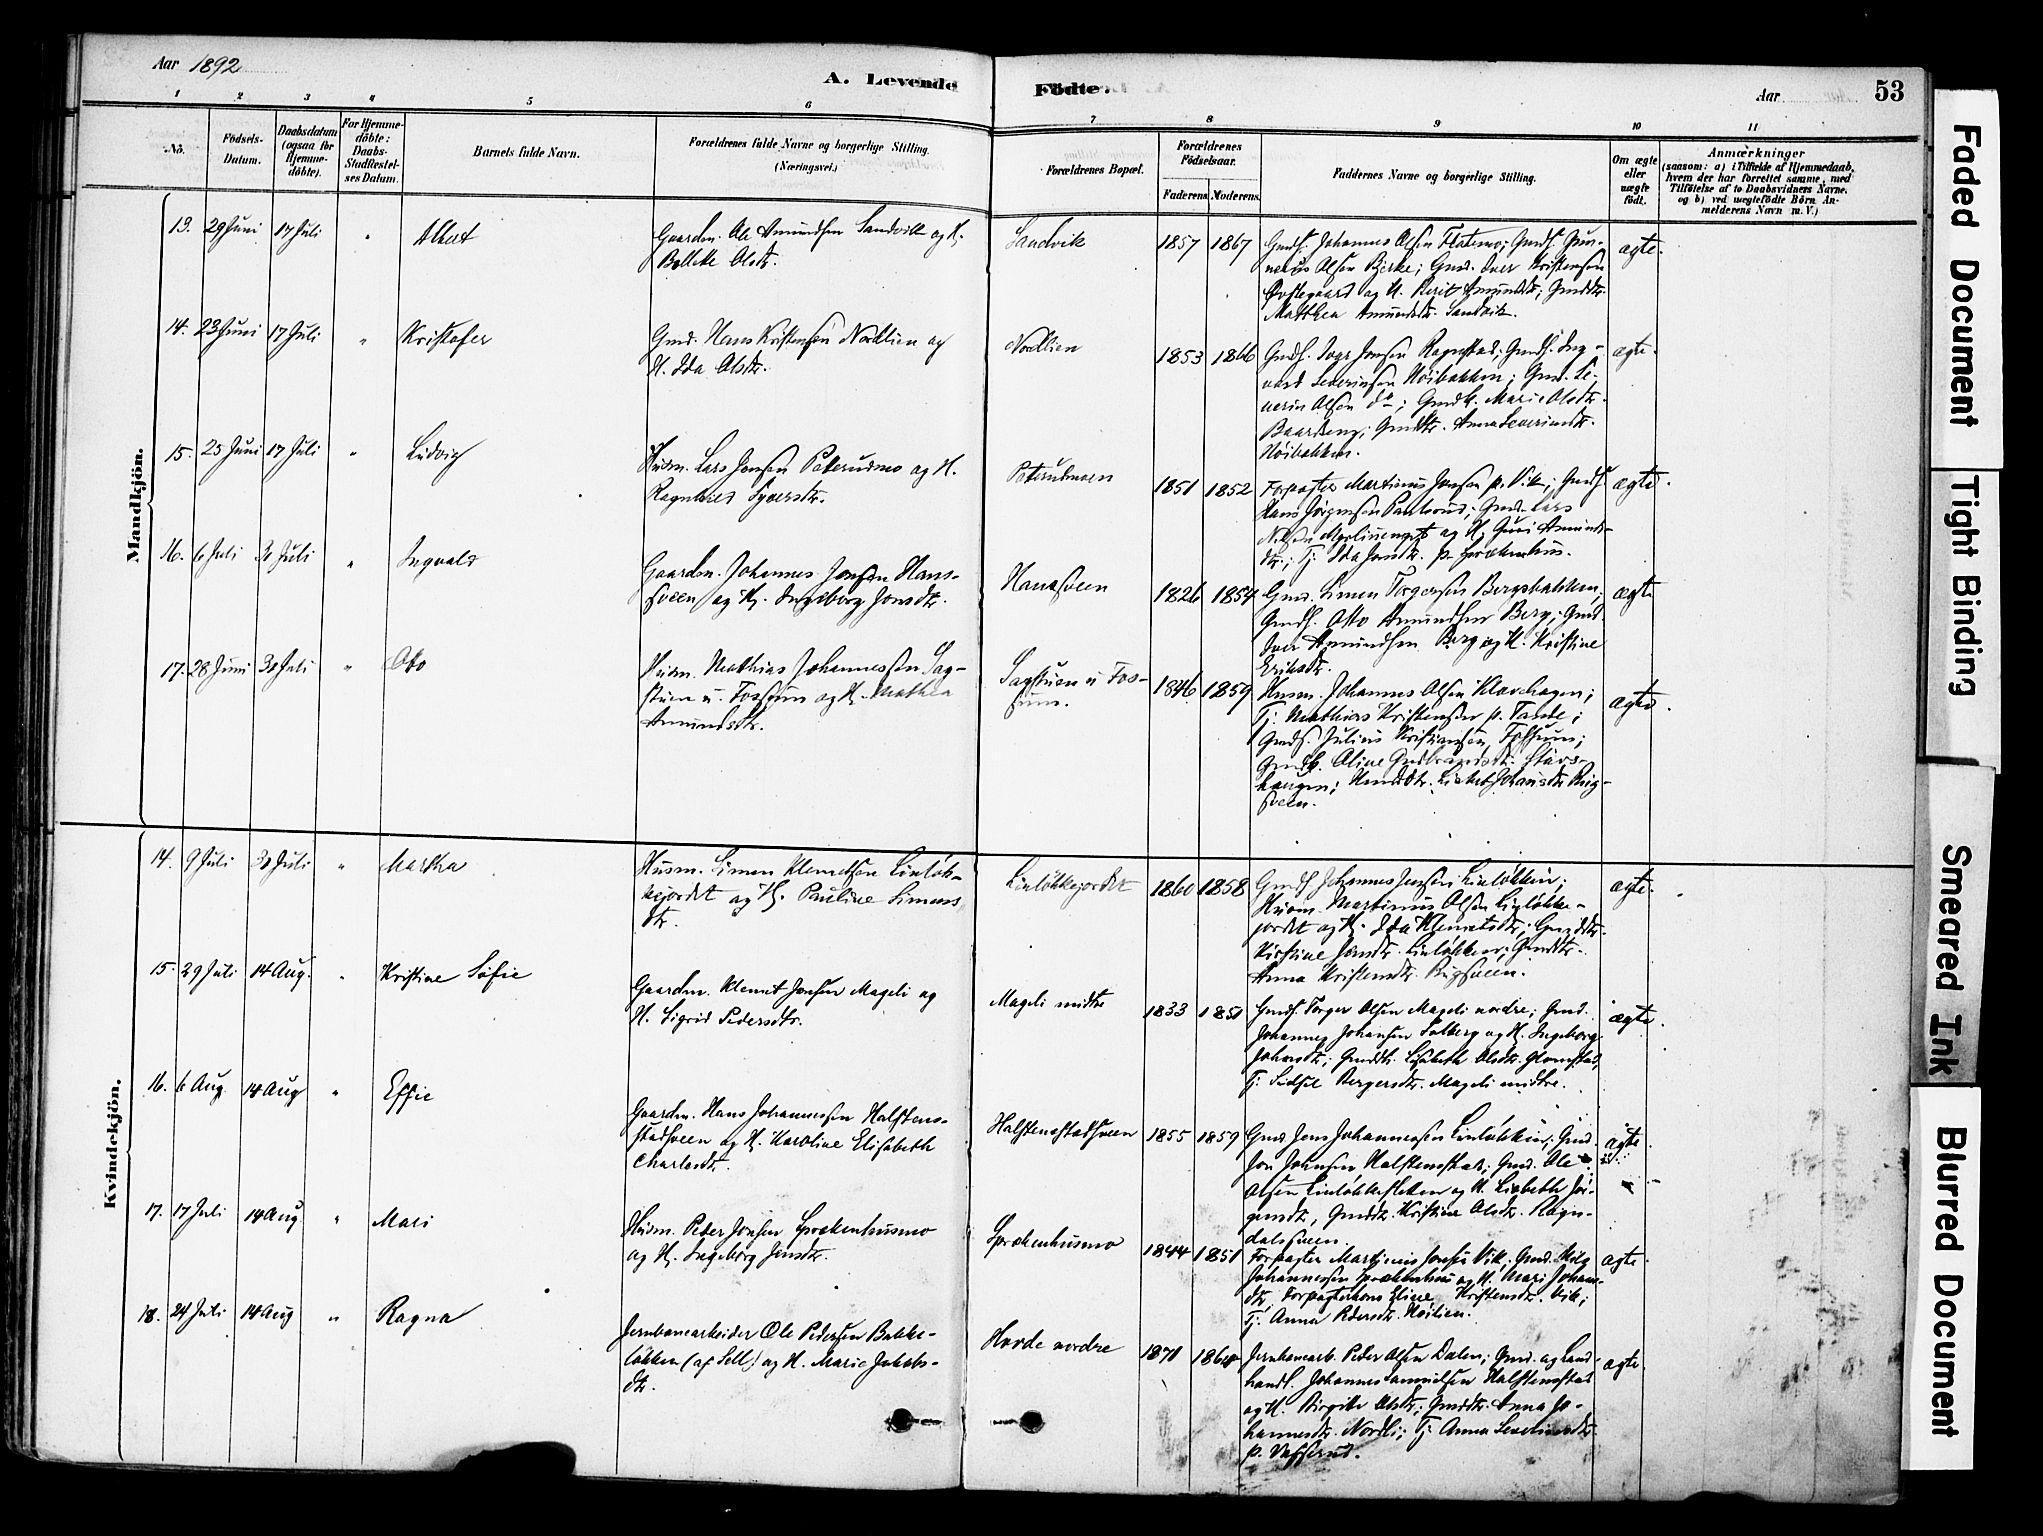 Aar 1892
A. Levende Fødte.
Aar 53
1 2 3 4 5 6 7 8 9 10 11
No.
Födsels-Datum.
Daabsdatum (ogsaa for Hjemme-döbte).
For Hjemme-döbte: Daabs-Stadfæstel-ses Datum.
Barnets fulde Navn.
Forældrenes fulde Navne og borgerlige Stilling. (Næringsvei.)
Forældrenes Bopæl.
Forældrenes Födselsaar.
Faderens. Moderens.
Faddernes Navne og borgerlige Stilling.
Om ægte eller uægte födt.
Anmærkninger
(saasom: a) i Tilfælde af Hjemmedaab, hvem der har forrettet samme, med Tilföielse af to Daabsvidners Navne. og b) ved uægtefödte Börn Anmelderens Navn m. V.)
Mandkjön.
13. 29 Juni 17 Juli " Albert
Gaardm. Ole Amundsen Sandvik og H.
Olsdtr.
Sandvik 1857 1867
Gmdf. Johannes Olsen Flatemo; Gmdf. Gun-
nerius Olsen Bjerke; Gmd. Iver Kristensen
Øvstegaard og H. Berit Amundsdtr; Gmddtr.
Matthea Amundsdtr. Sandvik.
ægte.
14. 23 Juni 17 Juli " Kristofer
Gmd. Hans Kristensen Nordlien og
H. Ida Olsdtr.
Nordlien 1853 1866
Gmdf. Jonsen Ragnstad; Gmdf. Ing-
vard Severinsen Höibakken; Gmd. Se-
verin Olsen do; Gmdk. Marie Olsdtr.
Baardseng; Gmddtr. Anna Severinsdtr.
Höibakken.
ægte.
15. 25 Juni 17 Juli " Ludvig
Husm. Lars Jonsen Peterudmo og H.
Ragnhild Syversdtr.
1851 1852
Forpagter Martinus Jonsen p. Vik; Gmdf.
Hans Jörgensen; Gmd. Lars
og H. Guri Amunds-
dtr.; Tj. Ida Jonsdtr. p. Sprækenhus.
ægte.
16. 6 Juli 30 Juli " Ingvald
Gaardm. Johannes Jonsen Hans-
sveen og H. Ingeborg Jonsdtr.
Hanssveen 1826 1854
Gmd. Simen Torgersen Bergsbakken;
Gmdf. Otto Amundsen Berg; Gmd.
Iver Amundsen Berg og H. Kristine
Eriksdtr.
ægte
17. 28 Juni 30 Juli " Otto
Husm. Mathias Johannessen Sag-
stuen u. Fossum og H. Mathea
Amundsdtr.
Sagstuen u Fos-
sum. 1846 1859
Husm. Johannes Olsen Klævehagen;
Tj. Mathias Kristensen p. Tande;
Gmdf. Julius Kristiansen, Fossum;
Gmdk. Oline Gudbrandsdtr. Stavs-
haugen; Lisbet Johansdtr Rug-
sveen.
ægte.
Kvindekjön.
14. 9 Juli 30 Juli " Martha
Husm. Simen Klemetsen Linløk-
kejordet og H. Pauline Simens
dtr.
Linløkkejordet 1860 1858
Gmdf. Johannes Jensen Linløkken;
Husm. Martinus Olsen Linløkke-
jordet og H. Ida Klemetsdtr; Gmddtr.
Kirstine Jensdtr. Linløkken; Gmddtr.
Anna Kristensdtr. Rugsveen.
ægte.
15. 29 Juli 14 Aug. " Kristine Sofie
Gaardm. Klemet Jonsen Mageli og
H. Sigrid Pedersdtr.
Mageli midtre 1833 1851
Gmdf. Torger Olsen Mageli nordre; Gmd.
Johannes Johansen Solberg og H. Ingeborg
Johansdtr; Gmddtr. Lisabeth Olsdtr. Glomstad;
Tj. Sidsel Bergersdtr. Mageli midtre.
ægte.
16. 6 Aug. 14 Aug " Effie
Gaardm. Hans Johannessen Halstens-
stadsveen og H. Karoline Elisabeth
Charlesdtr.
Halstensstadsveen 1855 1859
Gmd Jens Johannessen Linløkken; Gmd.
Jon Johnsen Halstenstad; Gmd. Ole
Olsen Linløkkesletten og H. Lisbeth Jör-
gensdtr, Gmddtr. Kristine Olsdtr. Rogn-
dalssveen.
ægte.
17. 17 Juli 14 Aug " Mari
Husm. Peder Jonsen Sprækenhusmo
og H. Ingeborg Jensdtr.
Sprækenhusmo 1844 1851
Forpagter Martinius Jonsen Vik; Gmd.
Johannessen Sprækenhus og H. Mari Johan-
dtr, Forpagterkone Eline Kristensdtr. Vik;
Tj. Anna Pedersdtr. Höilien.
ægte.
18. 24 Juli 14 Aug " Ragna
Jernbanearbeider Ole Pedersen Bakke-
løkken (af Sell) og H. Marie Jakobs-
dtr.
Hovde nordre 1871 1864
Jernbanearb. Peder Olsen Dalen; Gmd. og Land-
handl. Johannes Halstenstad
og H. Birgitte Olsdtr; Gmddtr. Anna Jo-
hannesdtr. Nordli; Tj. Anna Severinsdtr.
p.
ægte.
Faded Document
Tight Binding
Smeared Ink
Blurred Document